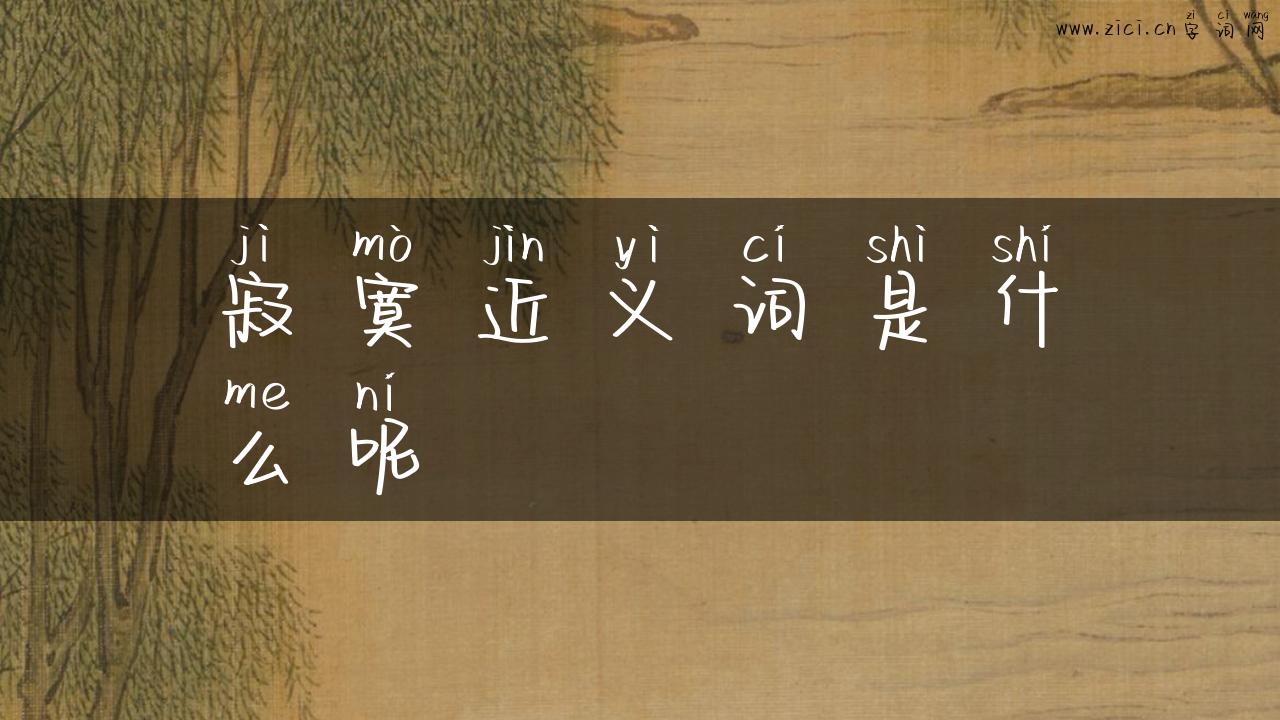 zì cí wǎng
www.zici.cn 字词网
jì mò jìn yì cí shì shí
寂寞近义词是什
me ní
么呢